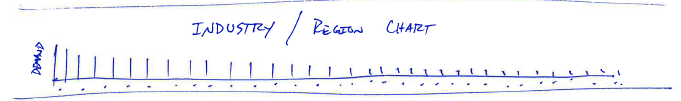 INDUSTRY / REGION CHART
DEMAND